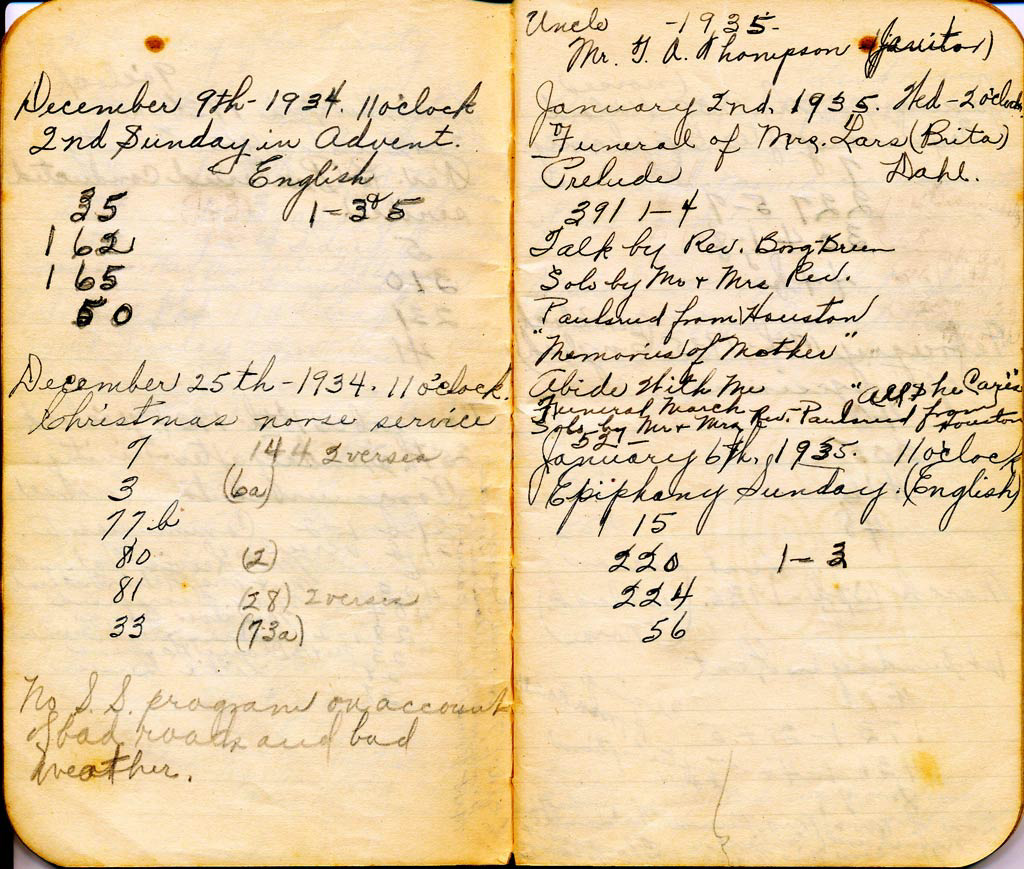 December 9th - 1934. 11 o'clock
2nd Sunday in Advent.
English
35 1-3 & 5
162
165
50
December 25th - 1934. 11 o'clock.
Christmas norse service
7 144 2 verses
3 (6a)
77 b
80 (2)
81 (28) 2 verses
33 (73a)
No S.S. program on account
of bad roads and bad
weather.
Uncle - 1935 -
Mr. T. A. Thompson (janitor)
January 2nd, 1935. Wed - 2 o'clock
Funeral of Mrs. Lars (Brita)
Prelude Dahl.
391 1-4
Talk by Rev. Borg-Breen
Solo by Mr + Mrs Rev.
Paulsrud from Houston
"Memories of Mother"
Abide With Me "All the Cares"
Funeral March
Solo by Mr + Mrs Rev. Paulsrud from Houston
527 -
January 6th, 1935. 11 o'clock
Epiphany Sunday. (English)
15
220 1-3
224
56